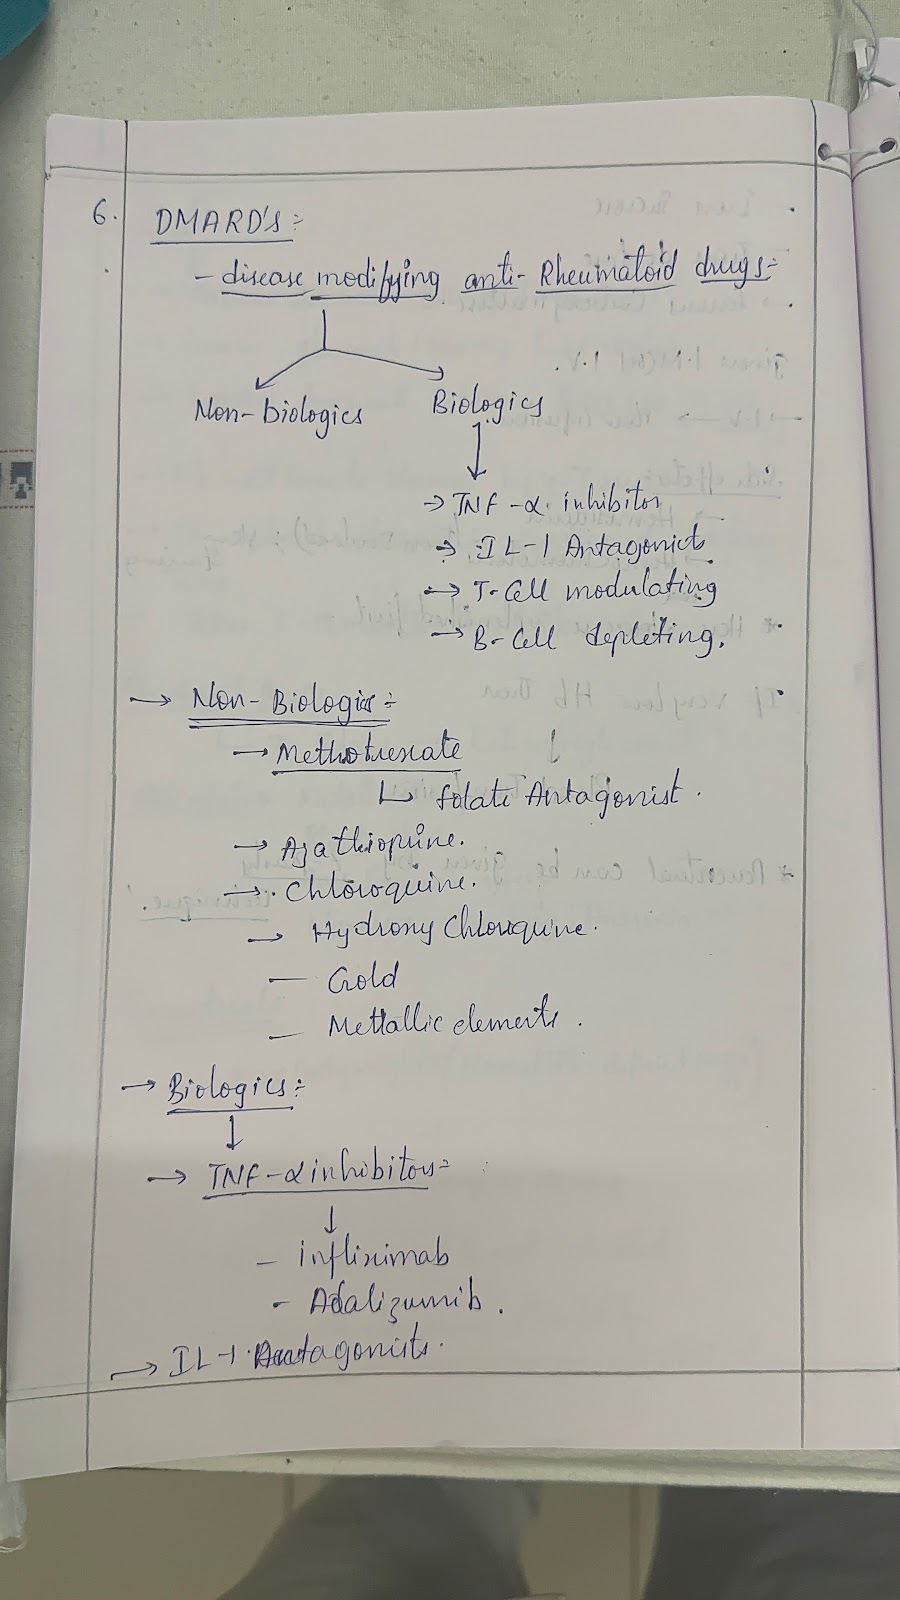 6. DMARD'S :-
- disease modifying anti-Rheumatoid drugs :-
Non-biologics
Biologics
→ TNF-α inhibitor
→ IL-1 Antagonists
→ T-Cell modulating
→ B-Cell depleting.
→ Non-Biologics :-
→ Methotrexate
↳ folate Antagonist.
→ Azathioprine.
→ Chloroquine.
→ Hydroxy Chloroquine.
- Gold
- Mettallic elements.
→ Biologics :-
→ TNF-α inhibitors :-
- infliximab
- Adalizumib.
→ IL-1 Antagonists.